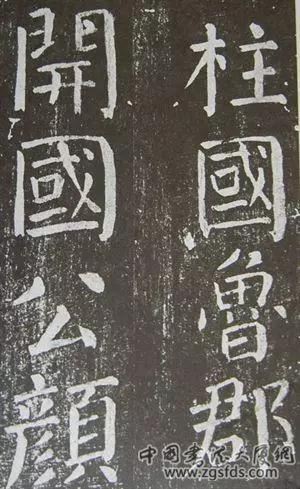 柱國魯郡
開國公顔
中国书法大风网
www.zgsfds.com